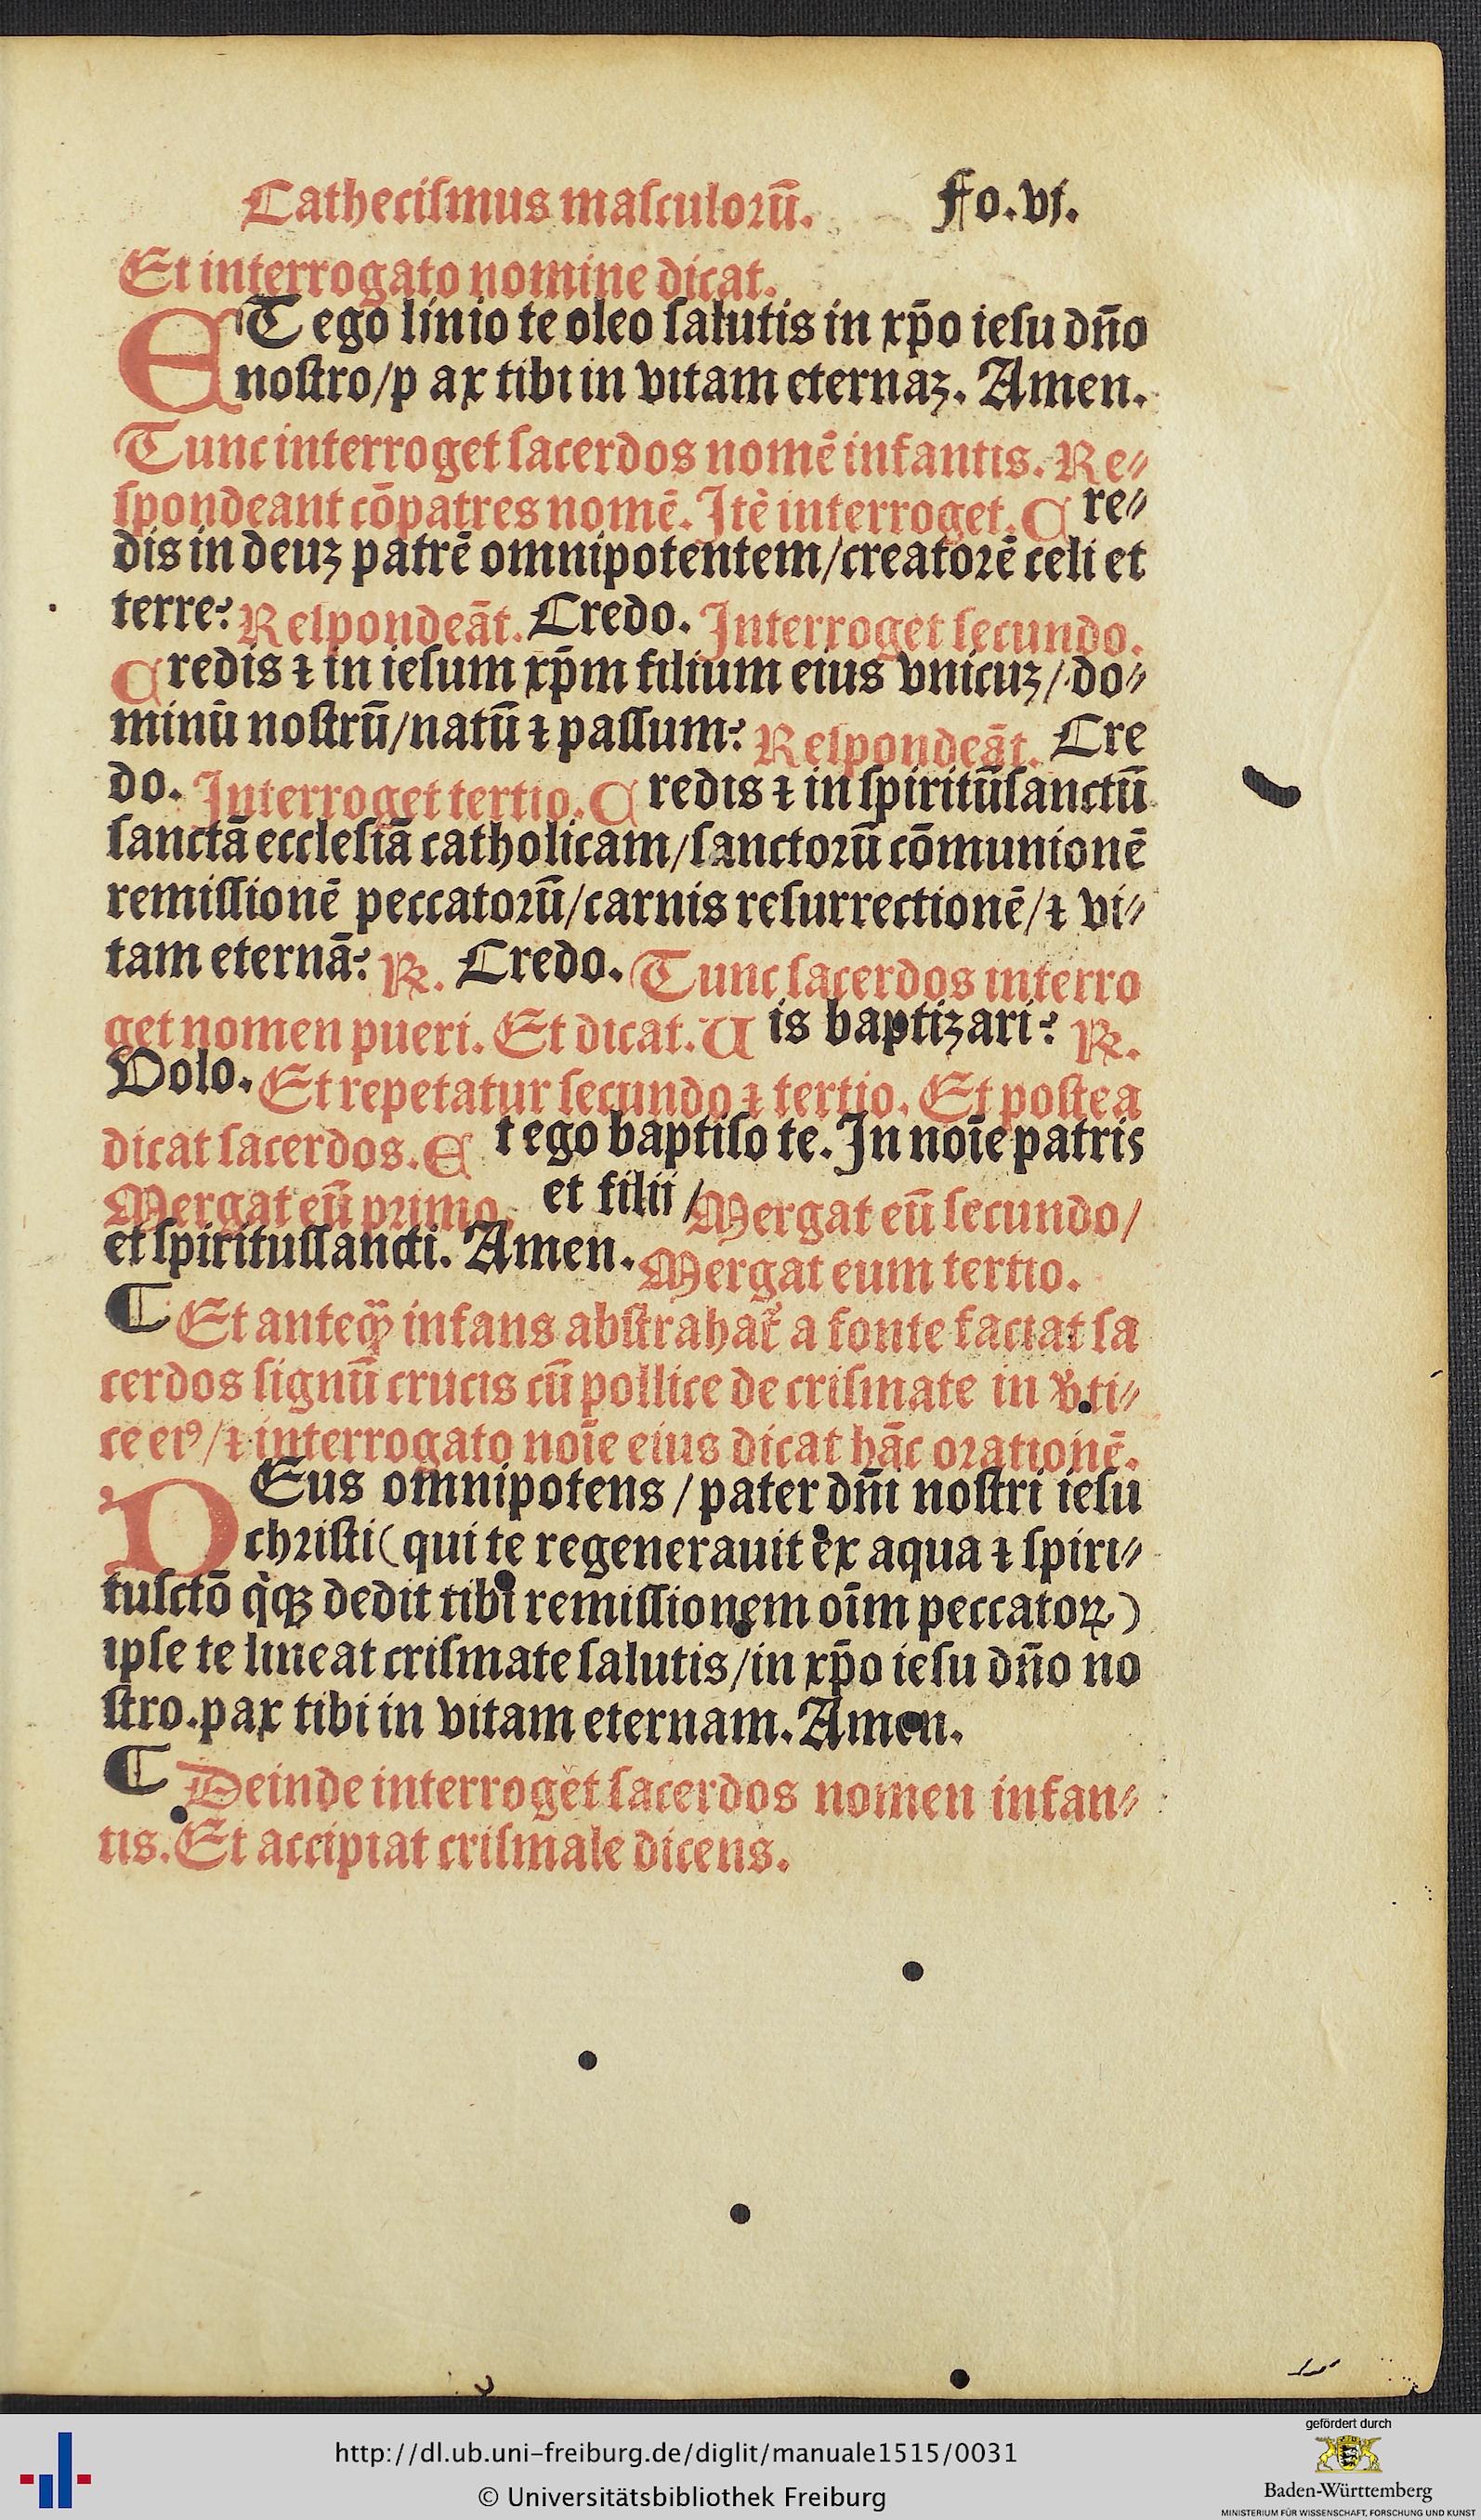 Catheciſmus maſculoꝛū. Fo.vi.
Et interrogato nomine dicat.
ET ego linio te oleo ſalutis in xp̄o ieſu dn̄o
noſtro/p ax tibi in vitam eternaꝫ. Amen.
Tunc interroget ſacerdos nomē infantis. Re⸗
ſpondeant cōpatres nomē. Itē interroget. Cre⸗
dis in deuꝫ patrē omnipotentem/creatoꝛē celi et
terre? Reſpondeāt. Credo. Interroget ſecundo.
Credis ⁊ in ieſum xp̄m filium eius vnicuꝫ/do⸗
minū noſtrū/natū ⁊ paſſum? Reſpondeāt. Cre
do. Interroget tertio. Credis ⁊ in ſpiritūſanctū
ſanctā eccleſiā catholicam/ſanctoꝛū cōmunionē
remiſſionē peccatoꝛū/carnis reſurrectionē/⁊ vi⸗
tam eternā? ℞. Credo. Tunc ſacerdos interro
get nomen pueri. Et dicat. Vis baptizari? ℞.
Volo. Et repetatur ſecundo ⁊ tertio. Et poſtea
dicat ſacerdos. Et ego baptiſo te. In noīe patris
Mergat eū pꝛimo. et filii / Mergat eū ſecundo/
et ſpirituſſancti. Amen. Mergat eum tertio.
¶ Et anteqꝫ̃ infans abſtrahat᷑ a fonte faciat ſa
cerdos ſignū crucis cū pollice de criſmate in v̓ti⸗
ce eiꝰ/⁊ interrogato noīe eius dicat hāc oꝛationē.
DEus omnipotens / pater dn̄i noſtri ieſu
chꝛiſti (qui te regenerauit ex aqua ⁊ ſpiri⸗
tuſctō q̇qꝫ dedit tibi remiſſionem oīm peccatoꝝ)
ipſe te lineat criſmate ſalutis/in xp̄o ieſu dn̄o no
ſtro.pax tibi in vitam eternam. Amen.
¶ Deinde interroget ſacerdos nomen infan⸗
tis. Et accipiat criſmale dicens.
http://dl.ub.uni-freiburg.de/diglit/manuale1515/0031
© Universitätsbibliothek Freiburg
gefördert durch
Baden-Württemberg
MINISTERIUM FÜR WISSENSCHAFT, FORSCHUNG UND KUNST